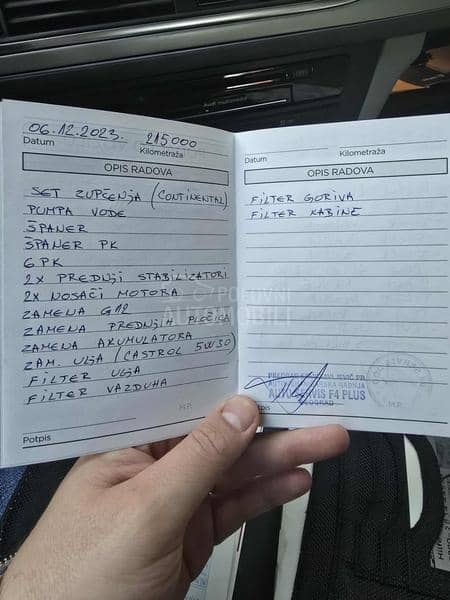 06.12.2023. 215000
Datum Kilometraža
OPIS RADOVA
SET ZUPČENJA (CONTINENTAL)
PUMPA VODE
ŠPANER
ŠPANER PK
6PK
2X PREDNJI STABILIZATORI
2X NOSAČI MOTORA
ZAMENA G12
ZAMENA PREDNJIH PLOČICA
ZAMENA AKUMULATORA
ZAM. ULJA (CASTROL 5W30)
FILTER ULJA
FILTER VAZDUHA
M.P.
Potpis
Datum Kilometraža
OPIS RADOVA
FILTER GORIVA
FILTER KABINE
AUTO SERVIS F4 PLUS
BEOGRAD
Potpis M.P.
POLOVNI
AUTOMOBILI